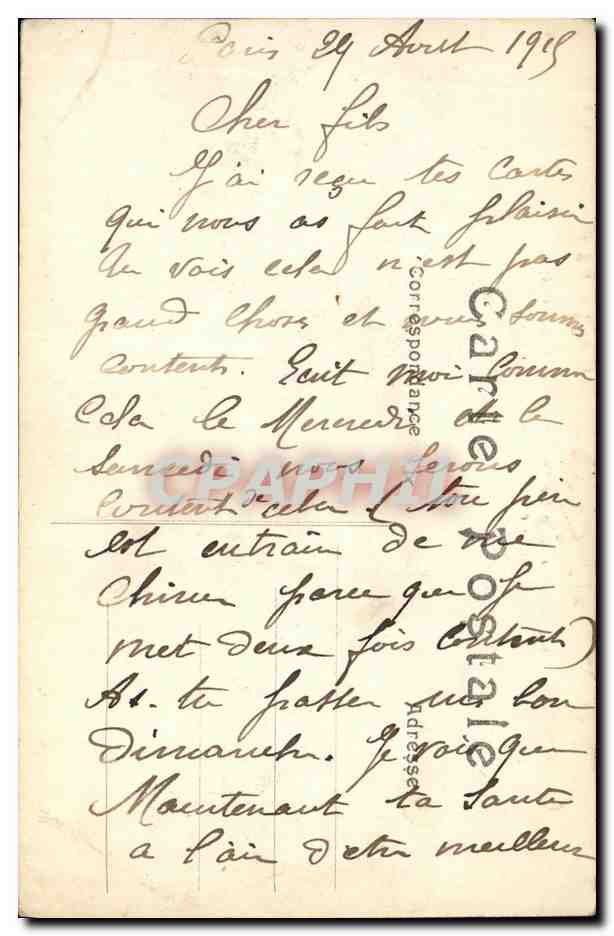 Paris 29 Avril 1915
Cher fils
J'ai reçu tes cartes
qui nous as fait plaisir
Tu vois cela n'est pas
grand chose et nous sommes
contents. Ecrit moi comme
Cela le Mercredi et le
Samedi nous serons
content de cela (ton père
est entrain de me
chiner parce que je
met deux fois content)
As-tu passer un bon
Dimanche. Je vois que
Maintenant ta santé
a l'air d'etre meilleur
Carte Postale
Correspondance
Adresse
CPAPHIL